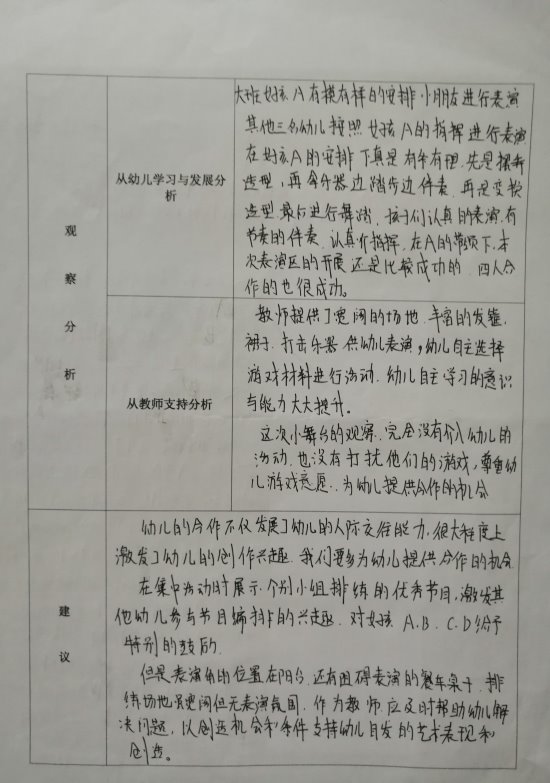 观察分析
从幼儿学习与发展分析
大班女孩A有模有样的安排小朋友进行表演
其他三名幼儿按照女孩A的指挥进行表演
在女孩A的安排下真是有条有理.先是摆新
造型,再拿乐器边踏步边伴奏.再是变换
造型最后进行舞蹈.孩子们认真的表演,有
节奏的伴奏.认真介指挥.在A的带领下.本
次表演区的开展还是比较成功的.四人合
作的也很成功。
从教师支持分析
教师提供了宽阔的场地.丰富的发箍、
裙子.打击乐器供幼儿表演,幼儿自主选择
游戏材料进行活动.幼儿自主学习的意识
与能力大大提升。
这次小舞台的观察.完全没有介入幼儿的
活动.也没有打扰他们的游戏,尊重幼
儿游戏意愿.为幼儿提供合作的机会
建议
幼儿的合作不仅发展了幼儿的人际交往能力.很大程度上
激发了幼儿的创作兴趣.我们要多为幼儿提供合作的机会
在集中活动时展示个别小组排练的优秀节目,激发其
他幼儿参与节目编排的兴趣.对女孩A.B.C.D给予
特别的鼓励.
但是表演角的位置在阳台.还有阻碍表演的餐车桌子.排
练场地虽宽阔但无表演氛围.作为教师应及时帮助幼儿解
决问题,以创造机会和条件支持幼儿自发的艺术表现和
创造。